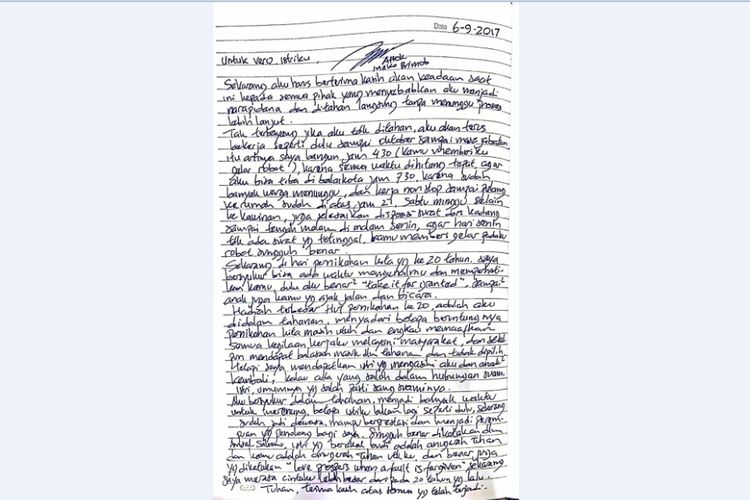 Date 6-9-2017
Untuk vero, istriku
Ahok
mako Brimob
Sekarang aku harus berterima kasih akan keadaan saat
ini kepada semua pihak yang menyebabkan aku menjadi
narapidana dan ditahan langsung tanpa menunggu proses
lebih lanjut.
Tak terbayang jika aku tdk ditahan, aku akan terus
bekerja seperti dulu sampai oktober sampai masa jabatan
itu artinya saya bangun jam 430 (kamu memberiku
gelar robot), karena semua waktu dihitung tepat, agar
aku bisa tiba di balaikota jam 730, karena sudah
banyak warga menunggu, dan kerja non stop sampai pulang
ke rumah sudah di atas jam 21, sabtu minggu selain
ke kawinan, juga selesaikan disposisi surat dan kadang
sampai tengah malam di malam senin, agar hari senin
tdk ada surat yg tertinggal, kamu memberi gelar padaku
robot sungguh benar.
Sekarang di hari pernikahan kita yg ke 20 tahun, saya
bersyukur bisa ada waktu mengenalmu dan memperhati-
kan kamu, dulu aku benar2 "take it for granted", sampai2
anak juga kamu yg ajak jalan dan bicara.
Hadiah terbesar HUT pernikahan ke 20, adalah aku
didalam tahanan, menyadari betapa beruntungnya
pernikahan kita masih utuh dan engkau memaafkan
semua kegilaan kerjaku melayani masyarakat, dan
pun mendapat balasan masuk tahanan dan tidak dipilih
lagi saya mendapatkan istri yg mengasihi aku dan anak2
kembali, kalau ada yang salah dalam hubungan suami
istri, umumnya yg salah pasti sang suaminya.
Aku bersyukur dalam tahanan, menjadi banyak waktu
untuk merenung, betapa istriku bukan lagi seperti dulu, sekarang
sudah jadi dewasa, mampu berprestasi dan menjadi perem-
puan yg penolong bagi saya. Sungguh benar dikatakan dlm
Amsal Salomo, istri yg berakal budi adalah anugerah Tuhan
dan kamu adalah anugerah Tuhan utkku, dan benar juga
yg dikatakan "love prospers when a fault is forgiven" sekarang
saya merasa cintaku lebih besar daripada 20 tahun yg lalu.
Tuhan, terima kasih atas semua yg telah terjadi.